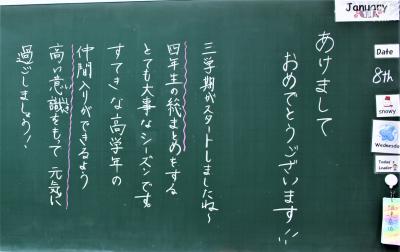 あけまして
おめでとうございます!!
三学期がスタートしましたね~
四年生の総まとめをする
とても大事なシーズンです。
すてきな高学年の
仲間入りができるよう
高い意識をもって元気に
いしき
過ごしましょう!
January
Date
8th
snowy
Wednesday
Today's
Leader